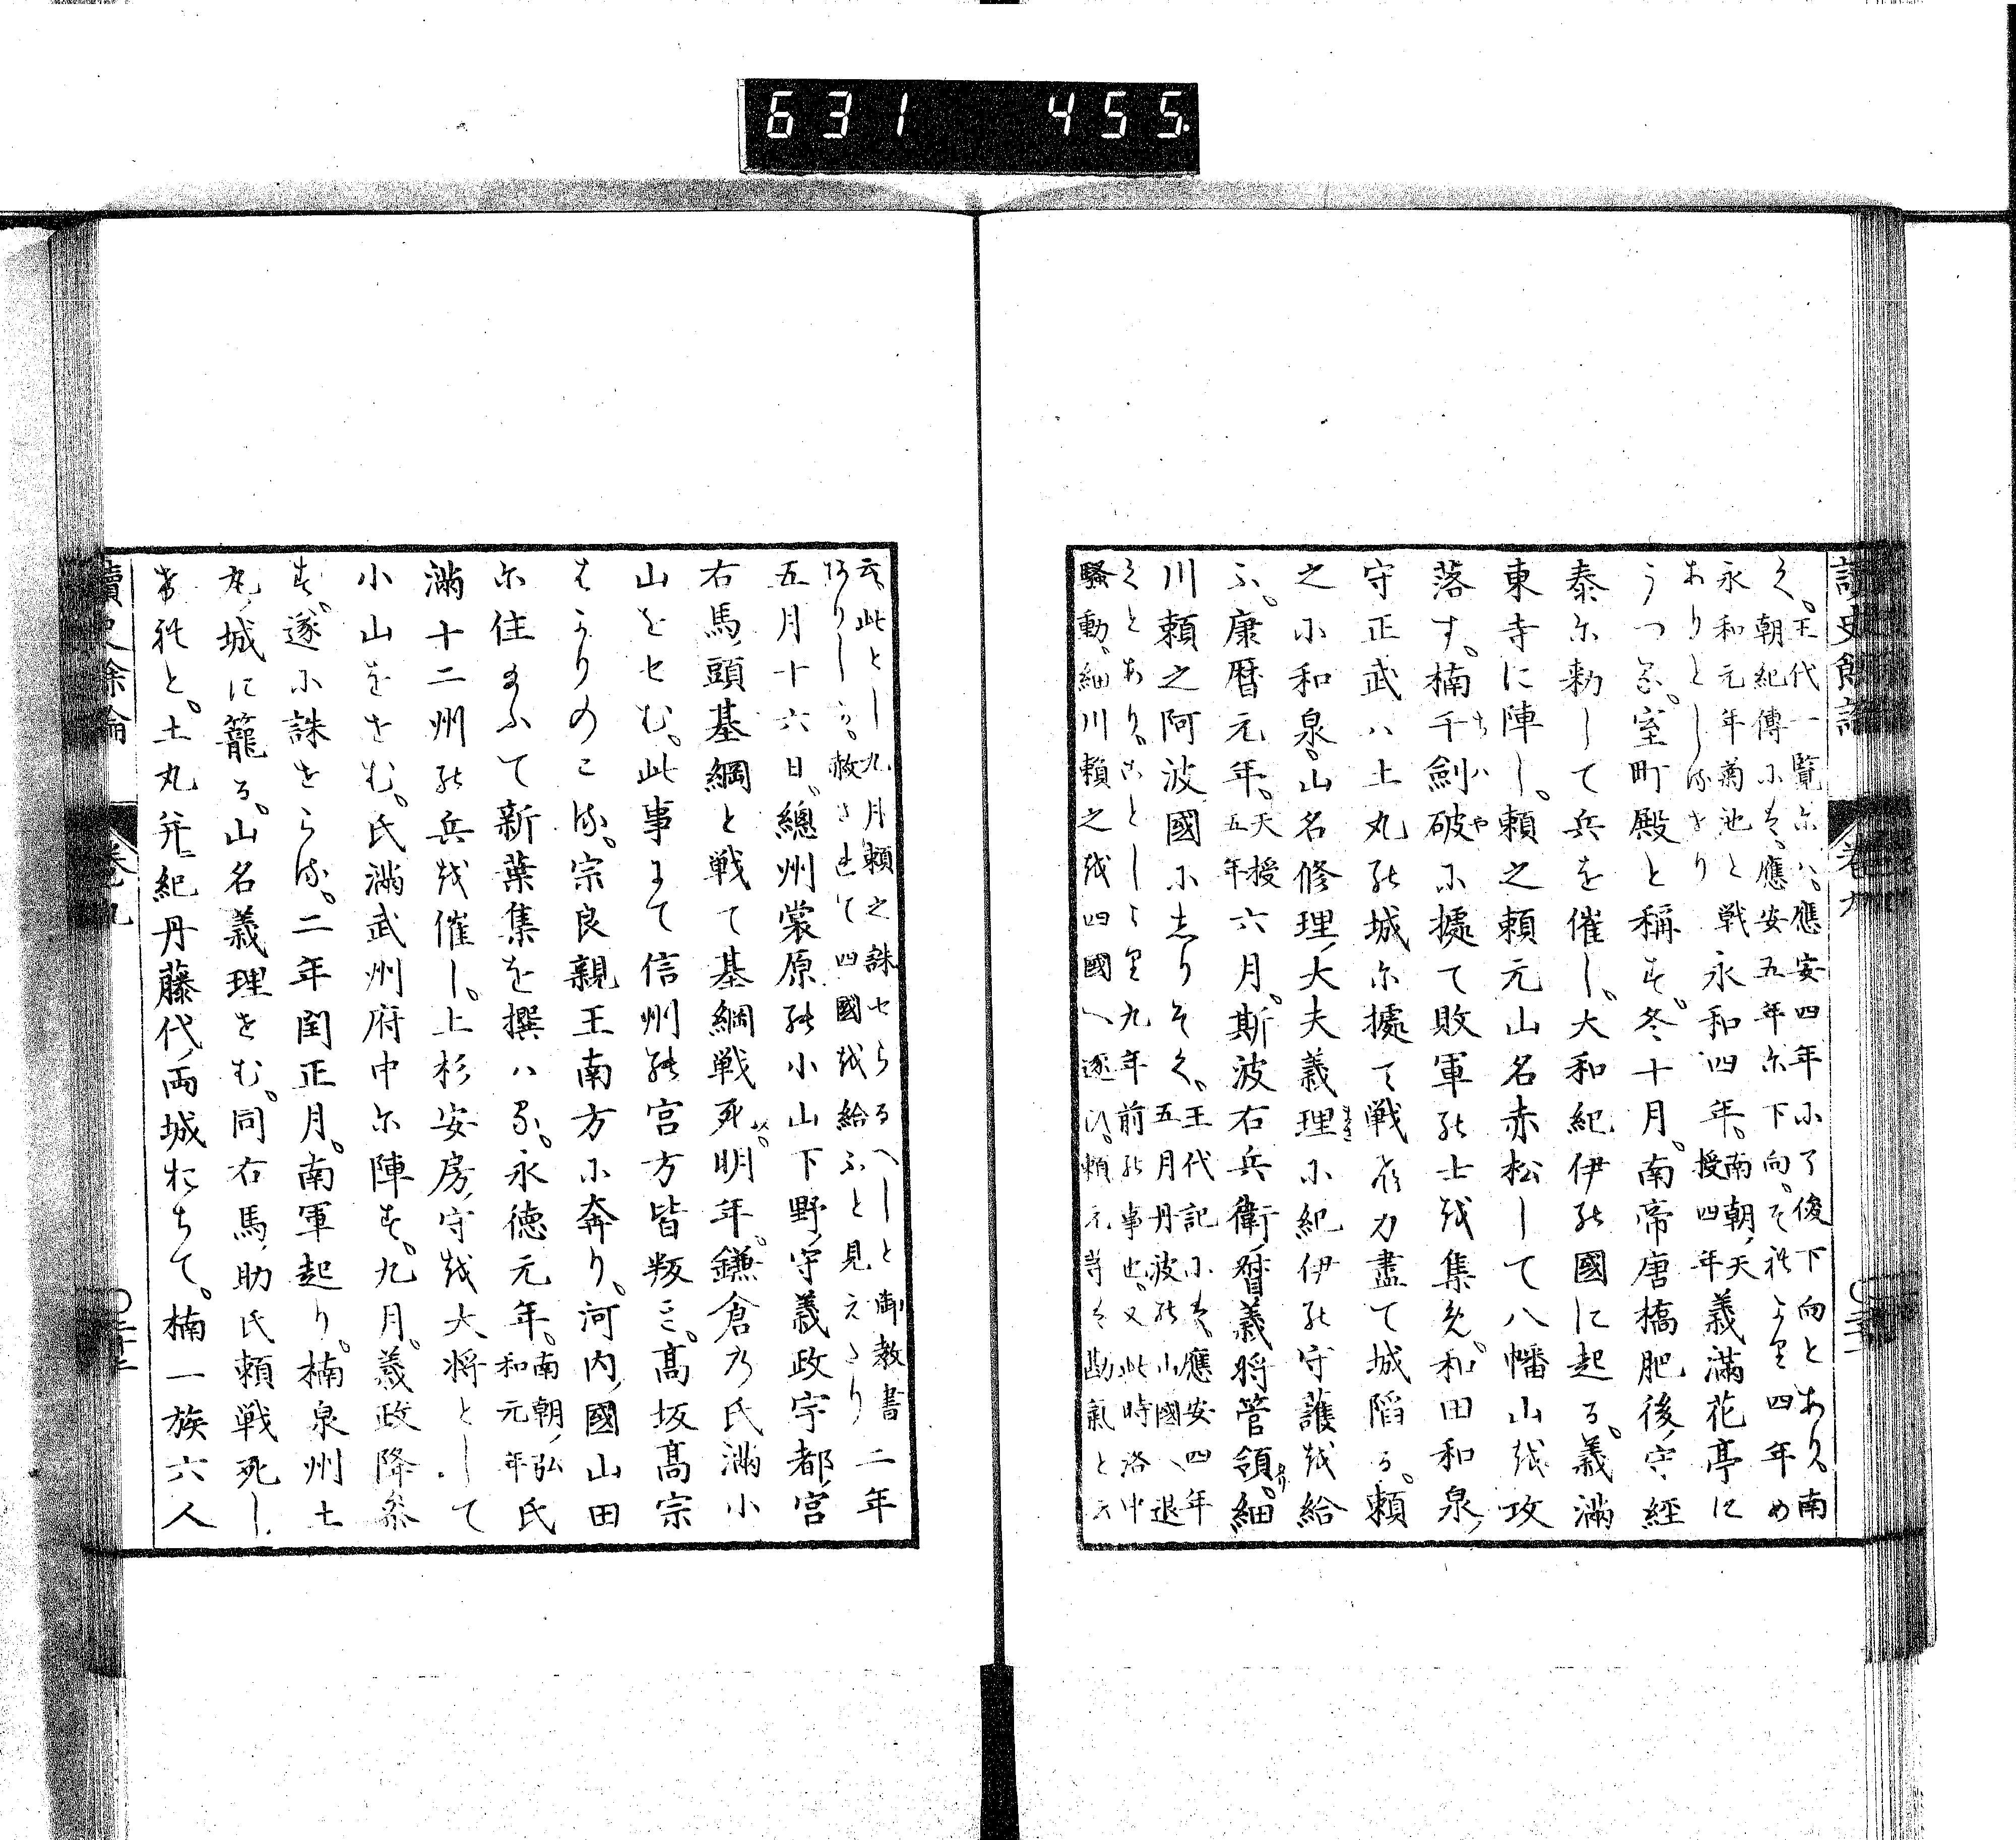 631 455
讀史餘論 卷九
く。王代一覧尓ハ。應安四年小了俊下向とあり。南
朝紀傳小は。應安五年尓下向。それより四年め
永和元年菊池と戦
ありとしるせり
永和四年。南朝ノ天授四年義滿花亭に
うつる。室町殿と稱す。冬十月。南帝唐橋肥後ノ守經
泰尓勅して兵を催し。大和紀伊の國に起る。義滿
東寺に陣し。頼之頼元山名赤松して八幡山を攻
落す。楠千劍破小據て敗軍の士を集む。和田和泉ノ
守正武ハ土丸の城尓據て戦ふ。力盡て城陷る。頼
之小和泉。山名修理ノ大夫義理小紀伊の守護を給
ふ。康暦元年。天授五年六月。斯波右兵衛ノ督義将管領。細
川頼之阿波國小しりぞく。王代記小は。應安四年
五月丹波の小國へ退
くとあり。ことしより九年前の事也。又此時洛中
騒動。細川頼之を四國へ逐ひ。頼元等は勘氣と云
云。此とし九月頼之誅せらるへしと御教書
ありしが。赦されて四國を給ふと見えたり
二年
五月十六日。總州裳原の小山下野ノ守義政宇都ノ宮
右馬ノ頭基綱と戦て基綱戦死。明年。鎌倉乃氏滿小
山をせむ。此事にて信州の宮方皆叛き。髙坂髙宗
はかりのこる。宗良親王南方小奔り。河内ノ國山田
尓住給ふて新葉集を撰ハる。永徳元年。南朝ノ弘和元年氏
滿十二州の兵を催し。上杉安房ノ守を大将として
小山をせむ。氏滿武州府中尓陣す。九月。義政降参
す。遂小誅せらる。二年閏正月。南軍起り。楠泉州土
丸ノ城に籠る。山名義理せむ。同右馬ノ助氏頼戦死し
けれと。土丸并ニ紀丹藤代ノ両城おちて。楠一族六人
讀史餘論 卷九